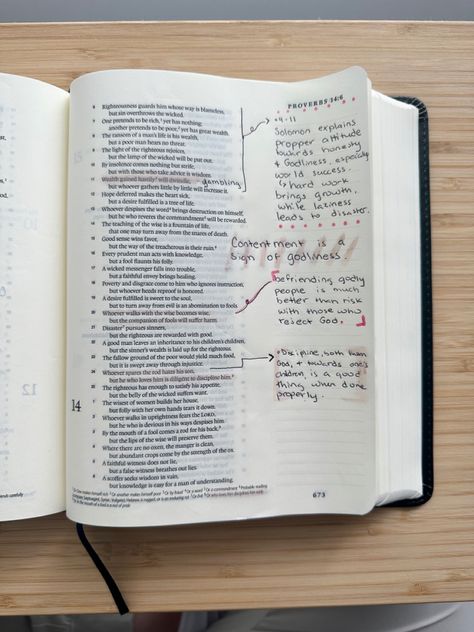 PROVERBS 14:6
6 Righteousness guards him whose way is blameless,
but sin overthrows the wicked.
7 One pretends to be rich, yet has nothing;
another pretends to be poor, yet has great wealth.
8 The ransom of a man's life is his wealth,
but a poor man hears no threat.
9 The light of the righteous rejoices,
but the lamp of the wicked will be put out.
10 By insolence comes nothing but strife,
but with those who take advice is wisdom.
11 Wealth gained hastily will dwindle,
but whoever gathers little by little will increase it.
12 Hope deferred makes the heart sick,
but a desire fulfilled is a tree of life.
13 Whoever despises the word brings destruction on himself,
but he who reveres the commandment will be rewarded.
14 The teaching of the wise is a fountain of life,
that one may turn away from the snares of death.
15 Good sense wins favor,
but the way of the treacherous is their ruin.
16 Every prudent man acts with knowledge,
but a fool flaunts his folly.
17 A wicked messenger falls into trouble,
but a faithful envoy brings healing.
18 Poverty and disgrace come to him who ignores instruction,
but whoever heeds reproof is honored.
19 A desire fulfilled is sweet to the soul,
but to turn away from evil is an abomination to fools.
20 Whoever walks with the wise becomes wise,
but the companion of fools will suffer harm.
21 Disaster pursues sinners,
but the righteous are rewarded with good.
22 A good man leaves an inheritance to his children's children,
but the sinner's wealth is laid up for the righteous.
23 The fallow ground of the poor would yield much food,
but it is swept away through injustice.
24 Whoever spares the rod hates his son,
but he who loves him is diligent to discipline him.
25 The righteous has enough to satisfy his appetite,
but the belly of the wicked suffers want.
14 The wisest of women builds her house,
but folly with her own hands tears it down.
2 Whoever walks in uprightness fears the LORD,
but he who is devious in his ways despises him.
3 By the mouth of a fool comes a rod for his back,
but the lips of the wise will preserve them.
4 Where there are no oxen, the manger is clean,
but abundant crops come by the strength of the ox.
5 A faithful witness does not lie,
but a false witness breathes out lies.
6 A scoffer seeks wisdom in vain,
but knowledge is easy for a man of understanding.
673
gambling
*4-11
Solomon explains
propper attitude
towards honesty
& Godliness, especially
world success.
↳ hard work
brings growth,
while laziness
leads to disaster.
Contentment is a
sign of godliness.
befriending godly
people is much
better than risk
with those who
reject God.
*Discipline, both from
God, & towards one's
children, is a good
thing when done
properly.
12